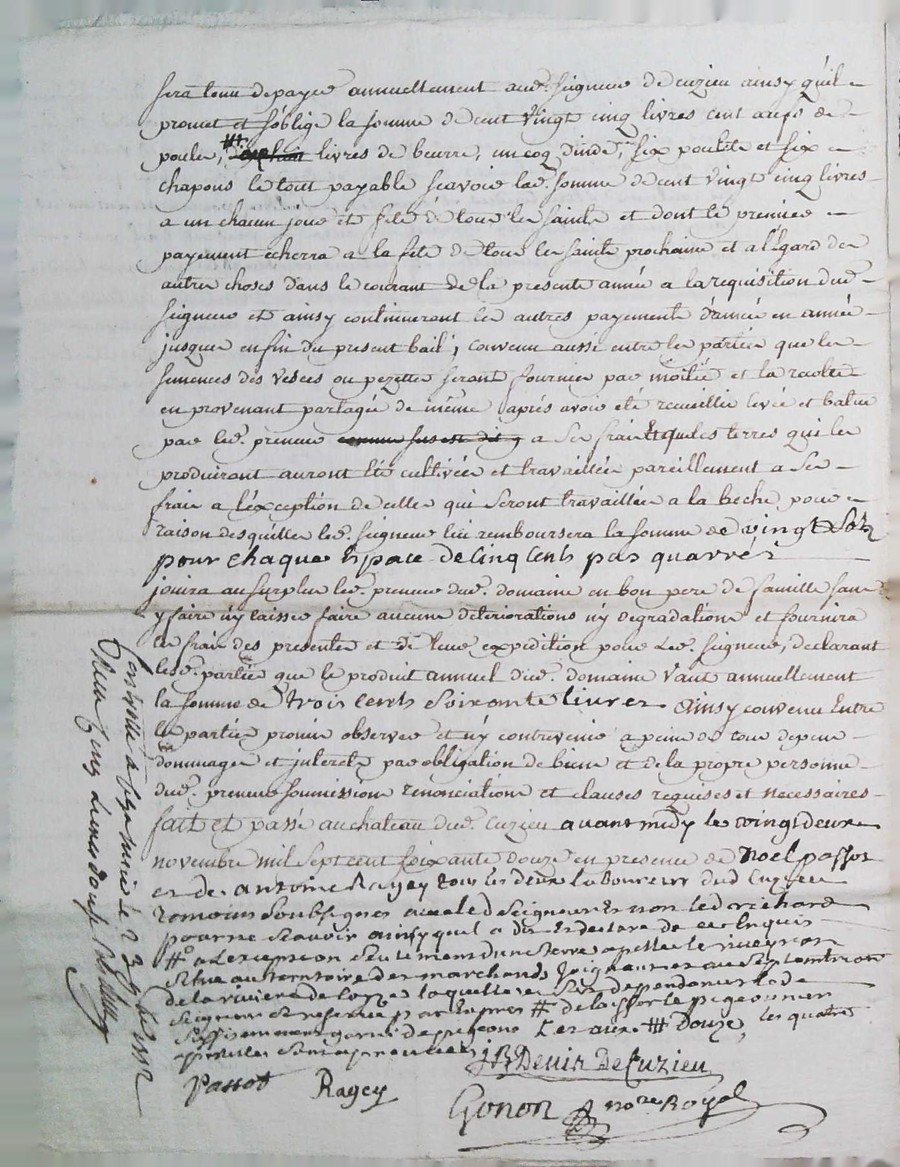 sera tenu de payer annuellement aud. seigneur de cuzieu ainsy quil
promet et s'oblige la somme de cent vingt cinq livres cent œufs de
poules, ## livres de beurre, un coq d'inde, six poulets et six
chapons le tout payable scavoir lad. somme de cent vingt cinq livres
a un chacun jour et fete de tous les saints et dont le premier
payement echerra a la fete de tous les saints prochaine et a l'égard des
autres choses dans le courant de la presente année a la requisition dud.
seigneur et ainsy continueront les autres payements d'année en année
jusques en fin du present bail; convenu aussi entre les parties que les
semences des vesces ou pezettes seront fournies par moitié et la recolte
en provenant partagée de même après avoir été recueillie levée et batue
par led. preneur comme sus est dit a ses frais et que les terres qui les
produiront auront été cultivées et travaillées pareillement a ses
frais a l'éxception de celles qui seront travaillées a la beche pour
raison desquelles led. seigneur lui remboursera la somme de vingt sols
pour chaque Espace de Cinq Cents pas quarrés
jouira au surplus led. preneur dud. domaine en bon pere de famille sans
y faire n'y laisser faire aucune détériorations n'y degradations et fournira
les frais des presentes et de leur expédition pour led. seigneur, declarant
lesd. parties que le produit annuel dud. domaine vaut annuellement
la somme de trois cents soixante livres ainsy convenu Entre
les parties promis observer et n'y contrevenir a peine de tous depens
dommages et interets par obligation de biens et de la propre personne
dud. preneur soumissions renonciations et clauses requises et necessaires
fait et passé au chateau dud. Cuzieu avant midy le vingt deux
novembre mil sept cent soixante douze en presence de Noel passot
et de antoine Ragey tous les deux laboureurs dud Cuzieu
temoins soubsignes avec led Seigneur Et non led richard
pour ne scavoir ainsy quil a dit Et declaré de ce Enquis
# a lexception seulement dune terre apellée le riveyron
Située au territoire des marchands joignant au Septentrion
de la riviere de loize laquelle
Seigneur Et reservée par Expres # de laisser le pigeonnier
suffisemment garni de pigeons Et eaux ### Douze, les quatre
paroles sont aprouvées JB Denis De Cuzieu
Passot Ragey
Gonon nore Royal
Controllé a le 23 9bre 1772
Reçu